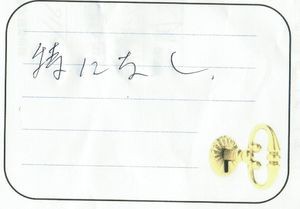 特になし.